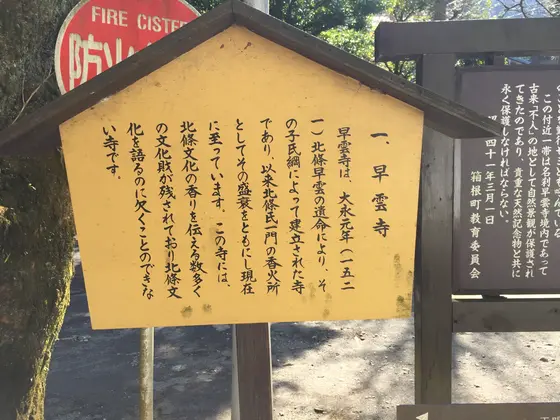 FIRE CISTE
防火
一、早雲寺
早雲寺は、大永元年(一五二
一)北條早雲の遺命により、そ
の子氏綱によって建立された寺
であり、以来北條氏一門の香火所
としてその盛衰をともにし現在
に至っています。この寺には、
北條文化の香りを伝える数多く
の文化財が残されており北條文
化を語るのに欠くことのできな
い寺です。
この付近一帯は名刹早雲寺境内であって
古来「不入」の地として自然景観が保護され
てきたのであり、貴重な天然記念物と共に
永く保護しなければならない。
四十一年三月一日
箱根町教育委員会